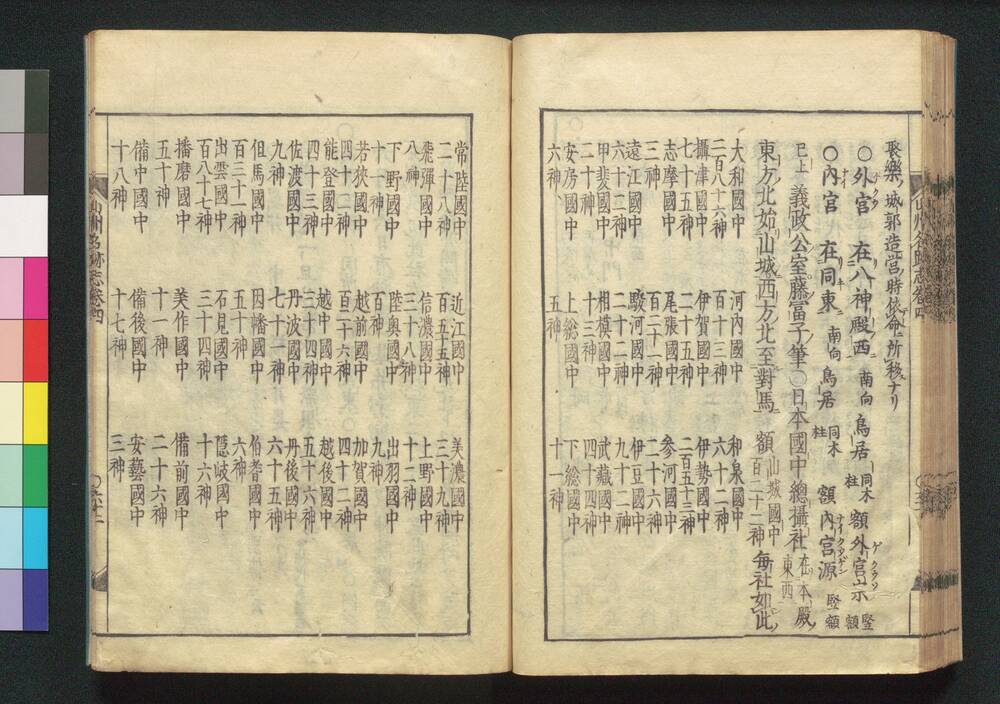 聚樂ノ城郭造営ノ時依命ニ所移ナリ
○外宮 在八神殿西 南向 鳥居 同木柱 額外宮宗 竪額
○内宮 在同東 南向 鳥居 同木柱 額内宮源 竪額
已上 義政公室藤富子筆○日本國中總攝社 在本殿東西
東方北始山城西方北至對馬 額 山城國中百二十二神 毎社如此
大和國中二百八十六神 河内國中百十三神 和泉國中六十二神
攝津國中七十五神 伊賀國中二十五神 伊勢國中二百五十三神
志摩國中三神 尾張國中百二十一神 参河國中二十六神
遠江國中六十二神 駿河國中二十二神 伊豆國中九十二神
甲斐國中二十神 相模國中十三神 武藏國中四十四神
安房國中六神 上総國中五神 下総國中十一神
常陸國中二十八神 近江國中百五十五神 美濃國中三十九神
飛彈國中八神 信濃國中四十八神 上野國中十二神
下野國中十一神 陸奥國中百神 出羽國中九神
若狹國中四十二神 越前國中百二十六神 加賀國中四十二神
能登國中四十三神 越中國中三十四神 越後國中五十六神
佐渡國中九神 丹波國中七十一神 丹後國中六十五神
但馬國中百三十一神 因幡國中五十神 伯耆國中六神
出雲國中百八十七神 石見國中三十四神 隠岐國中十六神
播磨國中五十神 美作國中十一神 備前國中二十六神
備中國中十八神 備後國中十七神 安藝國中三神
山州名跡志巻四